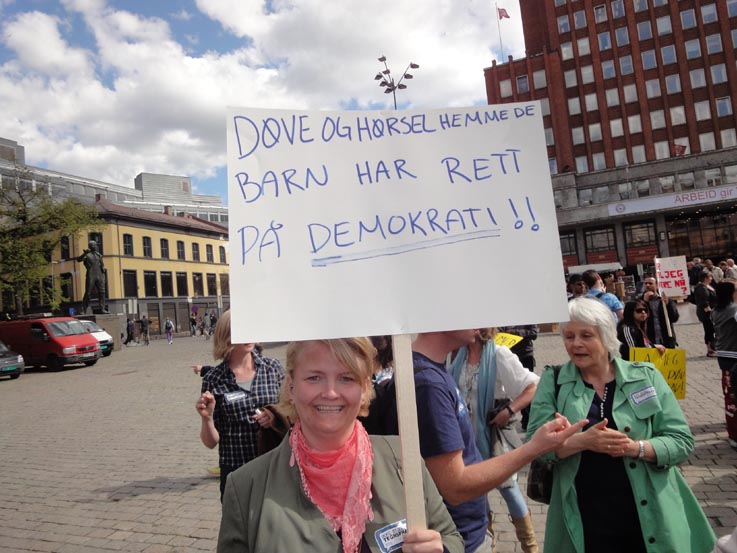 DØVE OG HØRSELHEMMEDE
BARN HAR RETT
PÅ DEMOKRATI!!
ARBEID gir